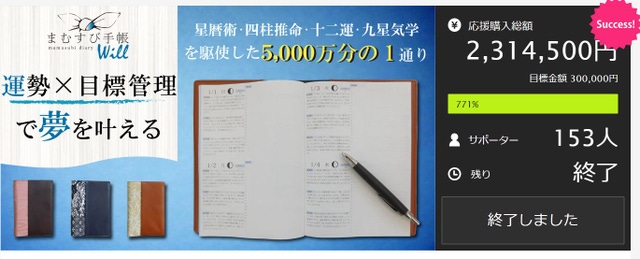 まむすび手帳
mamusubi diary
Will
運勢×目標管理
で夢を叶える
星暦術・四柱推命・十二運・九星気学
を駆使した5,000万分の1通り
応援購入総額
2,314,500円
目標金額 300,000円
771%
サポーター 153人
残り 終了
終了しました
Success!